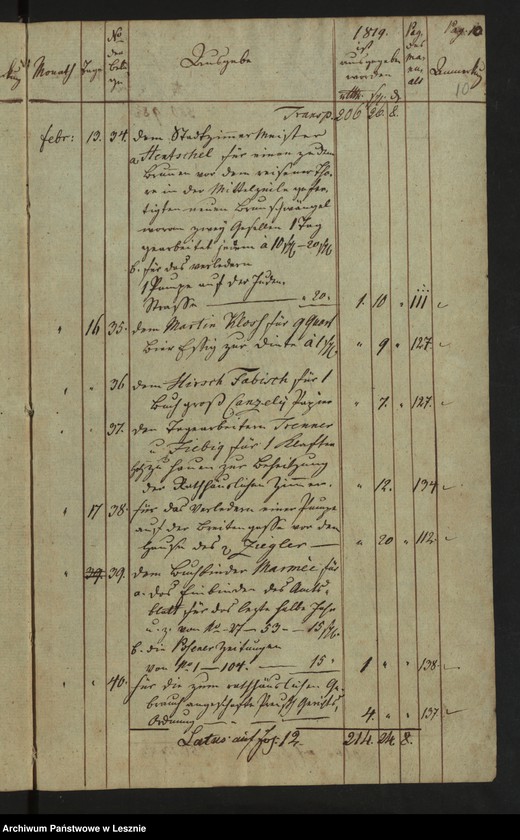 Pag. 10
Monath Tage No der Bela ge. Ausgabe 1819. ist ausgegeben worden Pag. des Ma- nu- als Anmerkg
rtlr. sgr. d.
10
Transp. 206. 26. 8.
febr: 13. 34. dem Stadtzimmermeister
a. Hentschel für einen zu dem
Brunnen vor dem reisener Tho-
re in der Mittelzeile gefer-
tigten neuen Brunschwängel
woran zwey Gesellen 1 Tag
gearbeitet jedem à 10 sgr – 20 sgr.
b. für das verledern
1 Pumpe auf der Juden-
Strasse — " 20. 1. 10 " 111
" 16 35. dem Martin Klosh für 9 Quart
Bier Essig zur Dinte à 1 sgr. " 9 " 127.
" " 36 dem Hirsch Fabisch für 1
Buch groß Canzeley Papier " 7. " 127.
" " 37. den Tagearbeitern Trenner
u. Fiebig für 1 Klafter
Holz zu hauen zur Beheitzung
der Rathhäuslichen Zimmer. " 12. " 134
" 17 38. für das Verledern einer Pumpe
auf der Breitengasse vor dem
Hause des Ziegler — " 20 " 112.
" 39. dem Buchbinder Marmée für
a. das Einbinden des Amts-
blatt für das lezte halbe Jahr
u. z. von No 27 – 53 – 15 sgr.
b. die Posener Zeitungen
von No 1 – 104. — 15 " 1 " " 138
" " 40. für die zum rathhäuslichen Ge-
brauch angeschafte Preuß Gerichts
Ordnung — 4. " " 137
Latus auf fol. 12. 214. 24. 8.
Archiwum Państwowe w Lesznie